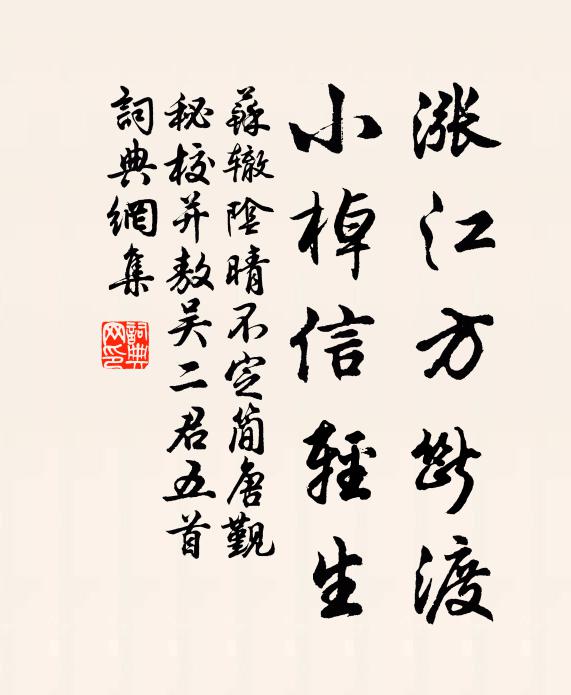 漲江方斷渡
小棹信輕生
蘇轍陰晴不定簡唐覲
秘校并敖吴二君五首
詞典網集
詞典網印